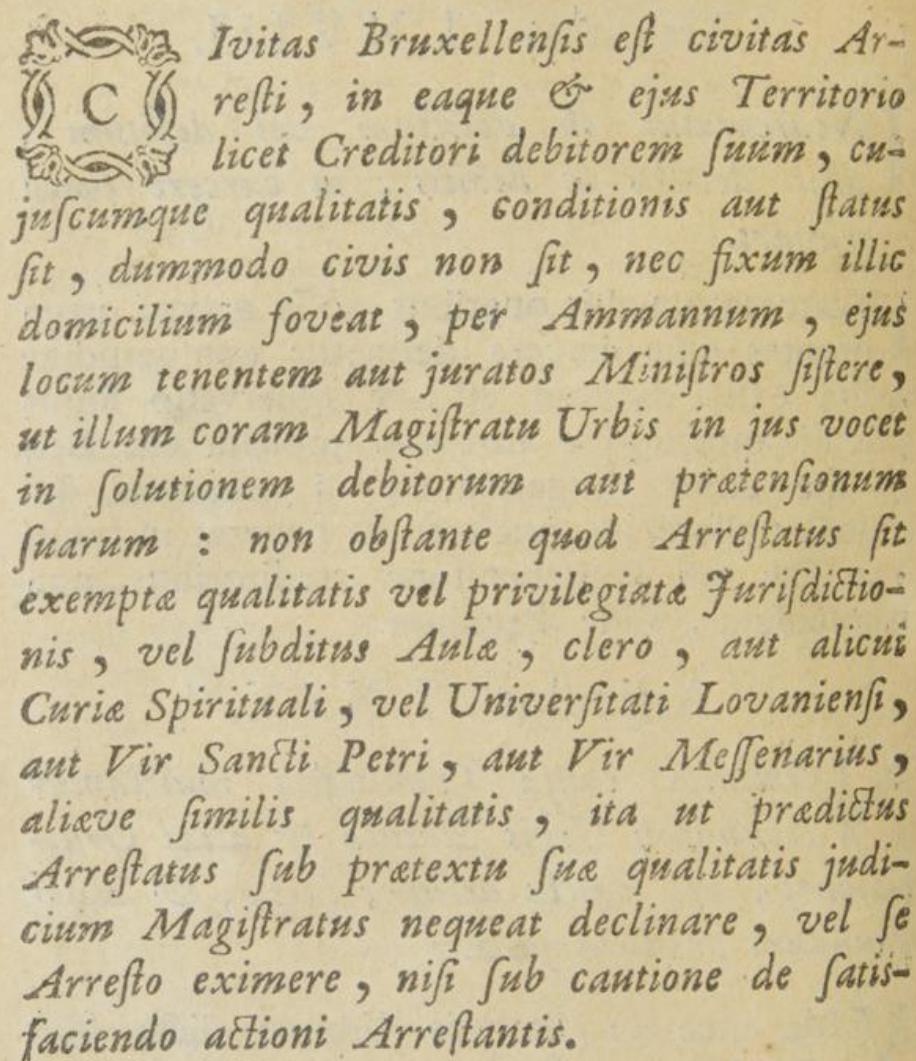 CIvitas Bruxellenſis eſt civitas Ar-
reſti, in eaque & ejus Territorio
licet Creditori debitorem ſuum, cu-
juſcumque qualitatis, conditionis aut ſtatus
ſit, dummodo civis non ſit, nec fixum illic
domicilium foveat, per Ammannum, ejus
locum tenentem aut juratos Miniſtros ſiſtere,
ut illum coram Magiſtratu Urbis in jus vocet
in ſolutionem debitorum aut prætenſionum
ſuarum : non obſtante quod Arreſtatus ſit
exemptæ qualitatis vel privilegiatæ Juriſdictio-
nis, vel ſubditus Aulæ, clero, aut alicui
Curiæ Spirituali, vel Univerſitati Lovanienſi,
aut Vir Sancti Petri, aut Vir Meſſenarius,
aliæve ſimilis qualitatis, ita ut prædictus
Arreſtatus ſub prætextu ſuæ qualitatis judi-
cium Magiſtratus nequeat declinare, vel ſe
Arreſto eximere, niſi ſub cautione de ſatis-
faciendo actioni Arreſtantis.